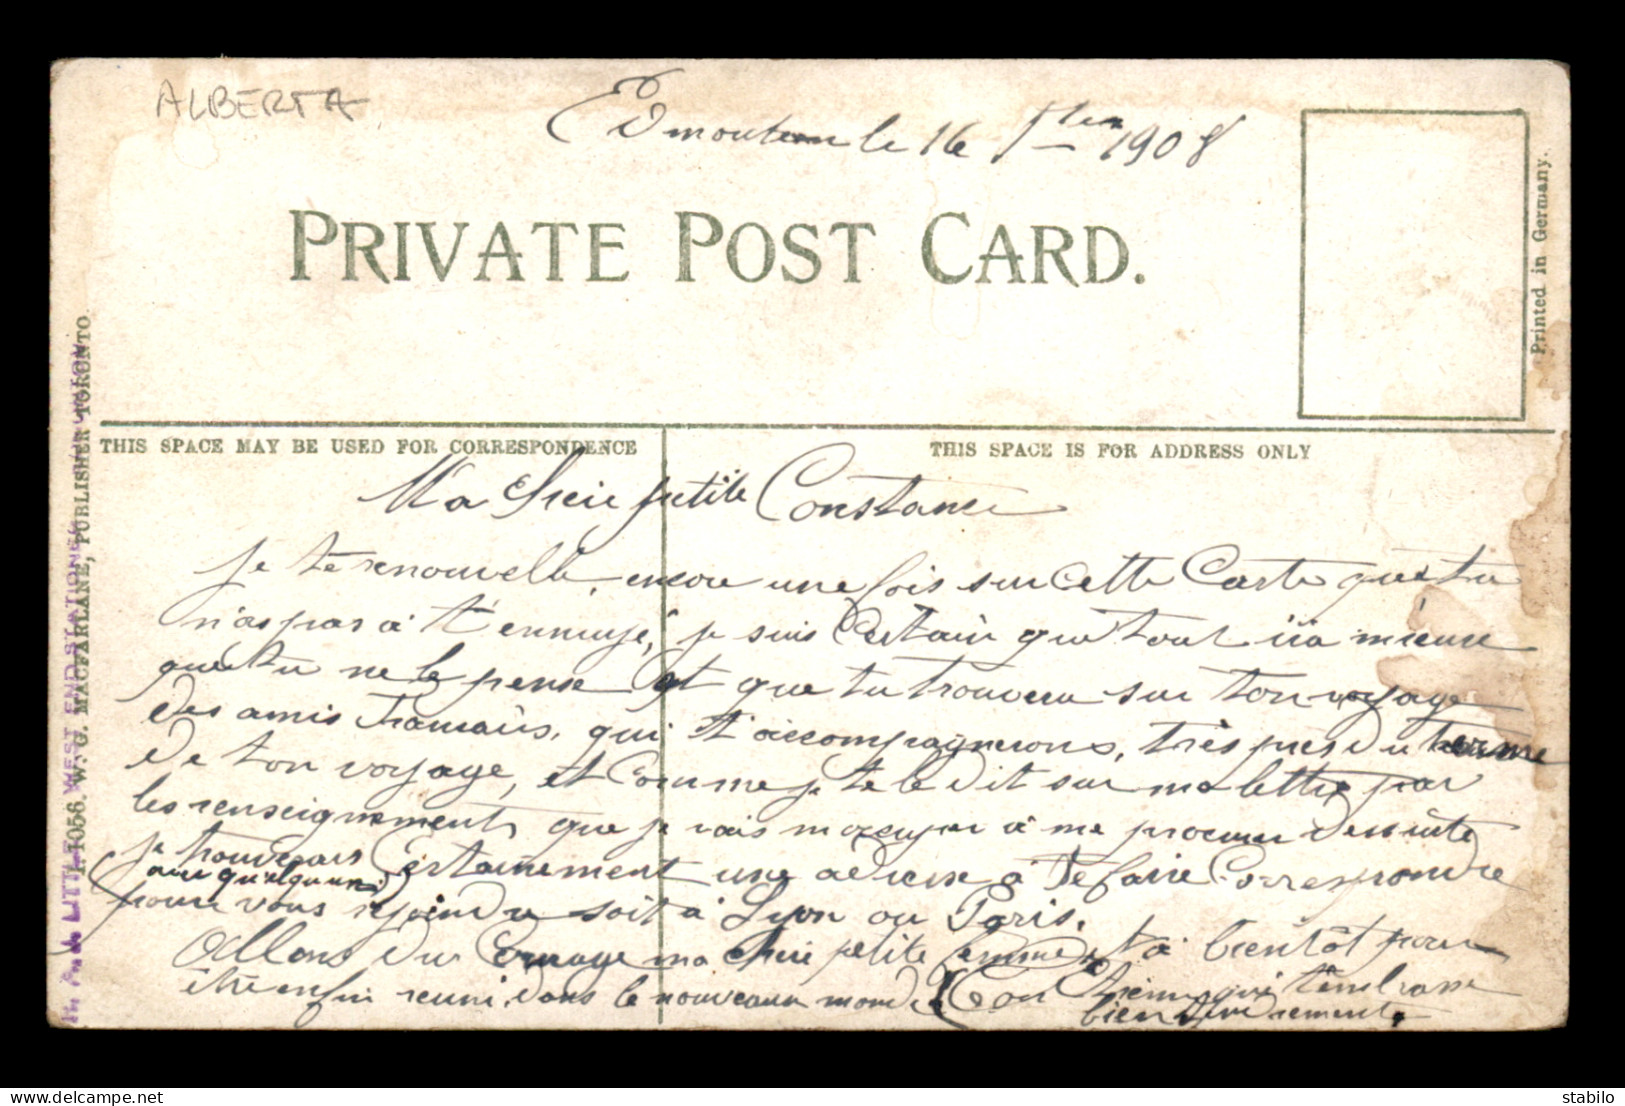 ALBERTA
Edmonton le 16 1908
PRIVATE POST CARD.
Printed in Germany.
W. G. MACFARLANE, PUBLISHER TORONTO.
1056.
LITTLE, WEST END STATIONER
THIS SPACE MAY BE USED FOR CORRESPONDENCE
THIS SPACE IS FOR ADDRESS ONLY
Ma Cheie petite Constance
Je te renouvelle, encore une fois sur cette Carte que tu
n'as pas à t'ennuye, je suis Certain que tout ira mieux
que tu ne le pense et que tu trouvera sur ton voyage
des amis francais, qui t'accompagnerons, très pres du terme
de ton voyage, et Comme je te le dit sur ma lettre par
les renseignements que je vais m'occuper à me procurer de suite
je trouverais Certainement une adresse à te faire Correspondre
(avec quelqu'un)
pour vous rejoindre soit à Lyon ou Paris.
Allons du Courage ma cheie petite femme et à bientôt pour
être enfin reuni dans le nouveau monde Ton qui t'embrasse
bien tendrement.
delcampe.net
stabilo